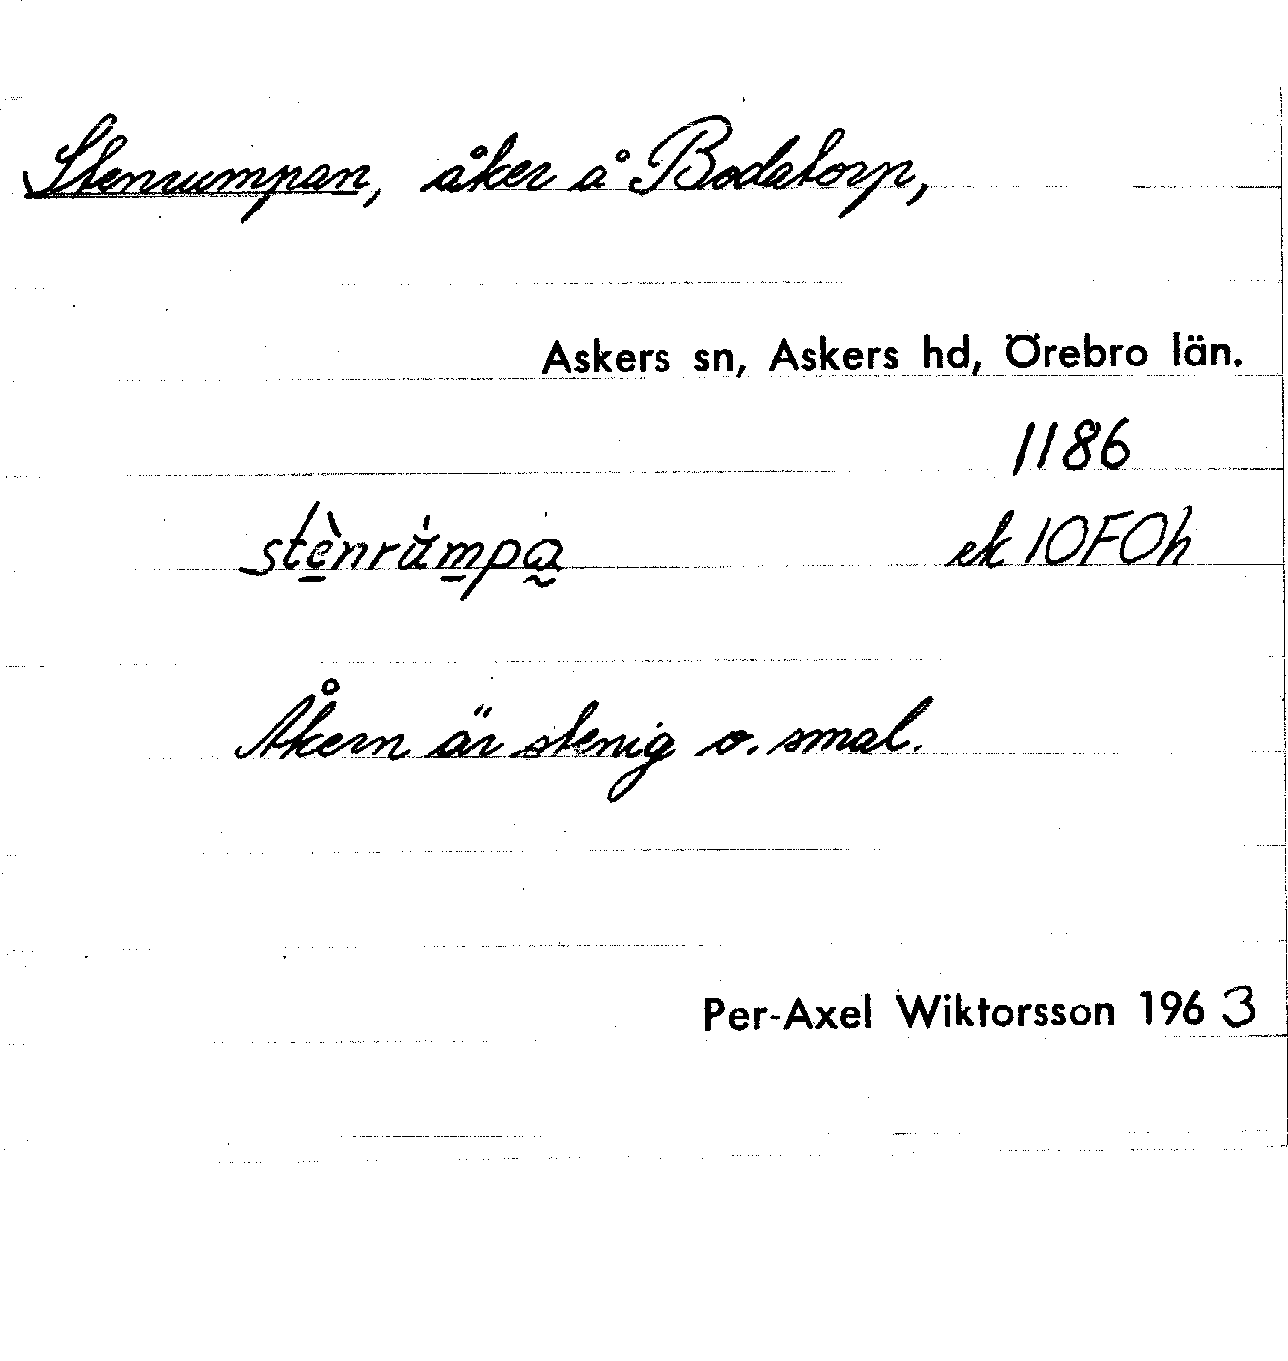 Stenrumpan, åker å Bodatorp,
Askers sn, Askers hd, Örebro län.
1186
stènrùmpa ek 10F0h
Åkern är stenig o. smal.
Per-Axel Wiktorsson 1963